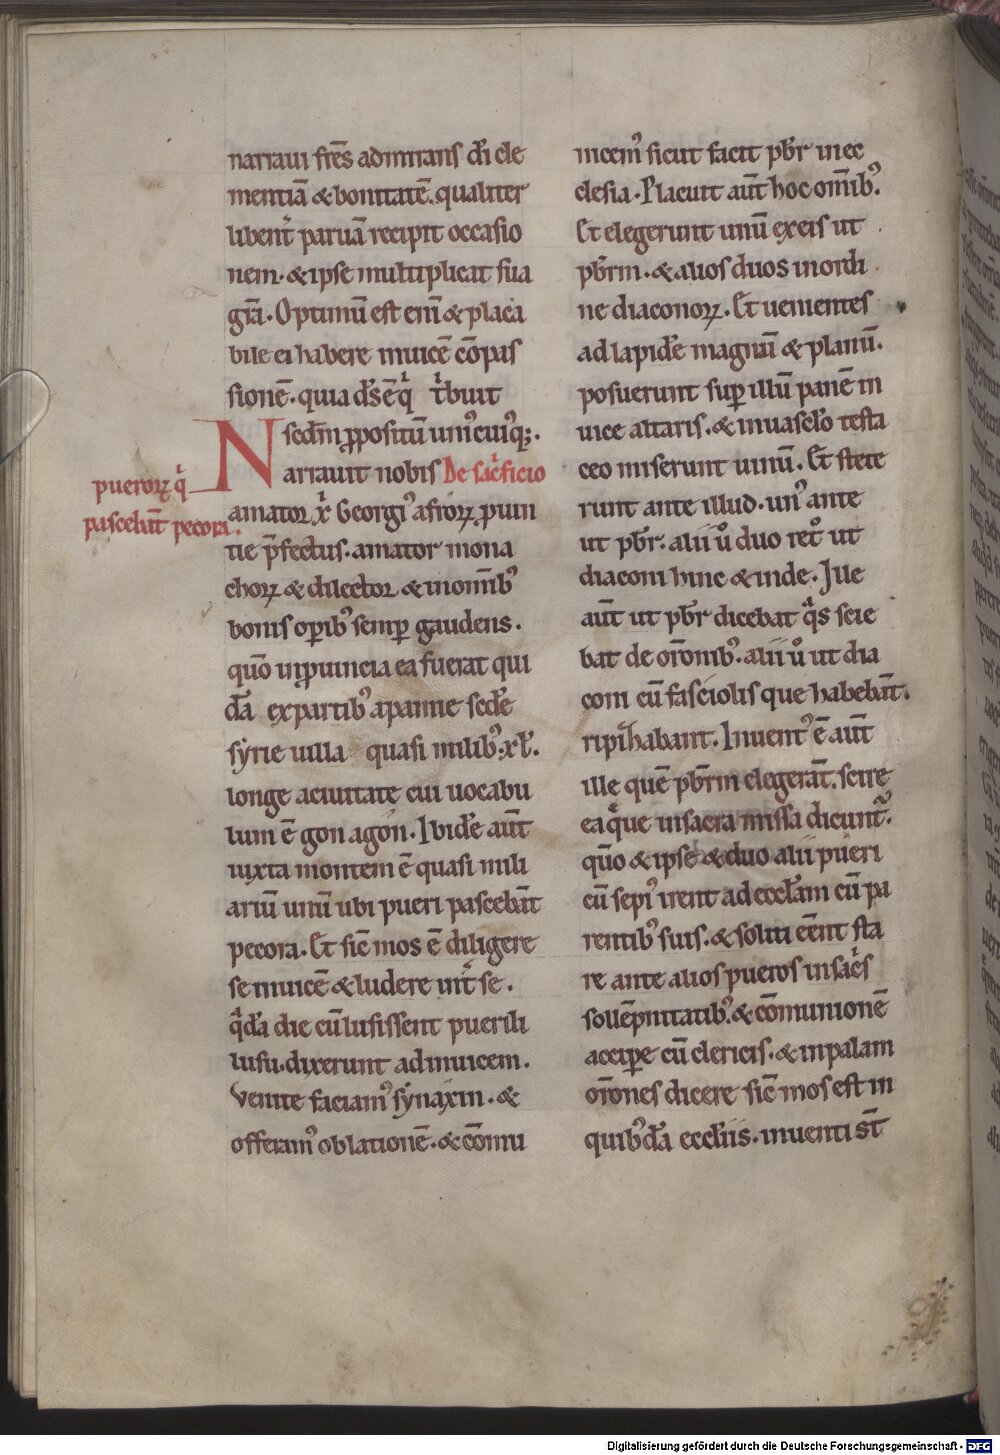 narraui fr̄es admirans dī cle
mentiā & bonitatē. qualiter
libent̄ paruā recipit occasio
nem. & ipse multiplicat sua
gr̄a. Optimū est enī & placa
bile ei habere inuicē cōpas
sionē. quia ds̄ eq̄ t̄buit
scdm̄ ꝓpositū uni'cui'q;.
Narrauit nobis De sac̄ficio
pueroꝝ q̄
pascebāt pecora.
amator xp̄i Georgi' afroꝝ ꝓuin
tie p̄fectus. amator mona
choꝝ & dilector & in omīb'
bonis oꝑib' semꝑ gaudens.
quō in ꝓuincia ea fuerat qui
dā ex partib' apanne scd̄e
syrie uilla quasi milib'. xl.
longe a ciuitate cui uocabu
lum ē gonagon. Ibide aūt
iuxta montem ē quasi mili
ariū unū ubi pueri pascebāt
pecora. Et sic mos ē diligere
se inuicē & ludere int̄ se.
q̄dā die cū lusissent puerili
lusu. dixerunt adinuicem.
Venite faciam' synaxin. &
offeram' oblationē. & cōmu
nicem' sicut facit pb̄r in ec
clesia. Placuit aūt hoc omīb'.
Et elegerunt unū ex eis ut
pb̄rm. & alios duos in ordi
ne diaconoꝝ. Et uenientes
ad lapidē magnū & planū.
posuerunt suꝑ illū panē in
uice altaris. & in uascl̄o testa
ceo miserunt uinū. Et stete
runt ante illud. un' ante
ut pb̄r. alii u° duo ret° ut
diaconi hinc & inde. Ille
aūt ut pb̄r dicebat q̄s scie
bat de or̄onib'. alii u° ut dia
coni cū fasciolis que habebāt.
ripidhabant. Inuent' ē aūt
ille quē pb̄rm elegerāt. scire
ea que in sacra missa dicunt̄.
quō & ipse & duo alii pueri
cū sepi' irent ad eccl̄am cū pa
rentib' suis. & soliti eēnt sta
re ante alios pueros in sac̄s
sollēpnitatib'. & cōmunionē
acciꝑe cū clericis. & in palam
or̄ones dicere sic̄ mos est in
quib'dā eccl̄iis. inuenti st̄
Digitalisierung gefördert durch die Deutsche Forschungsgemeinschaft - DFG